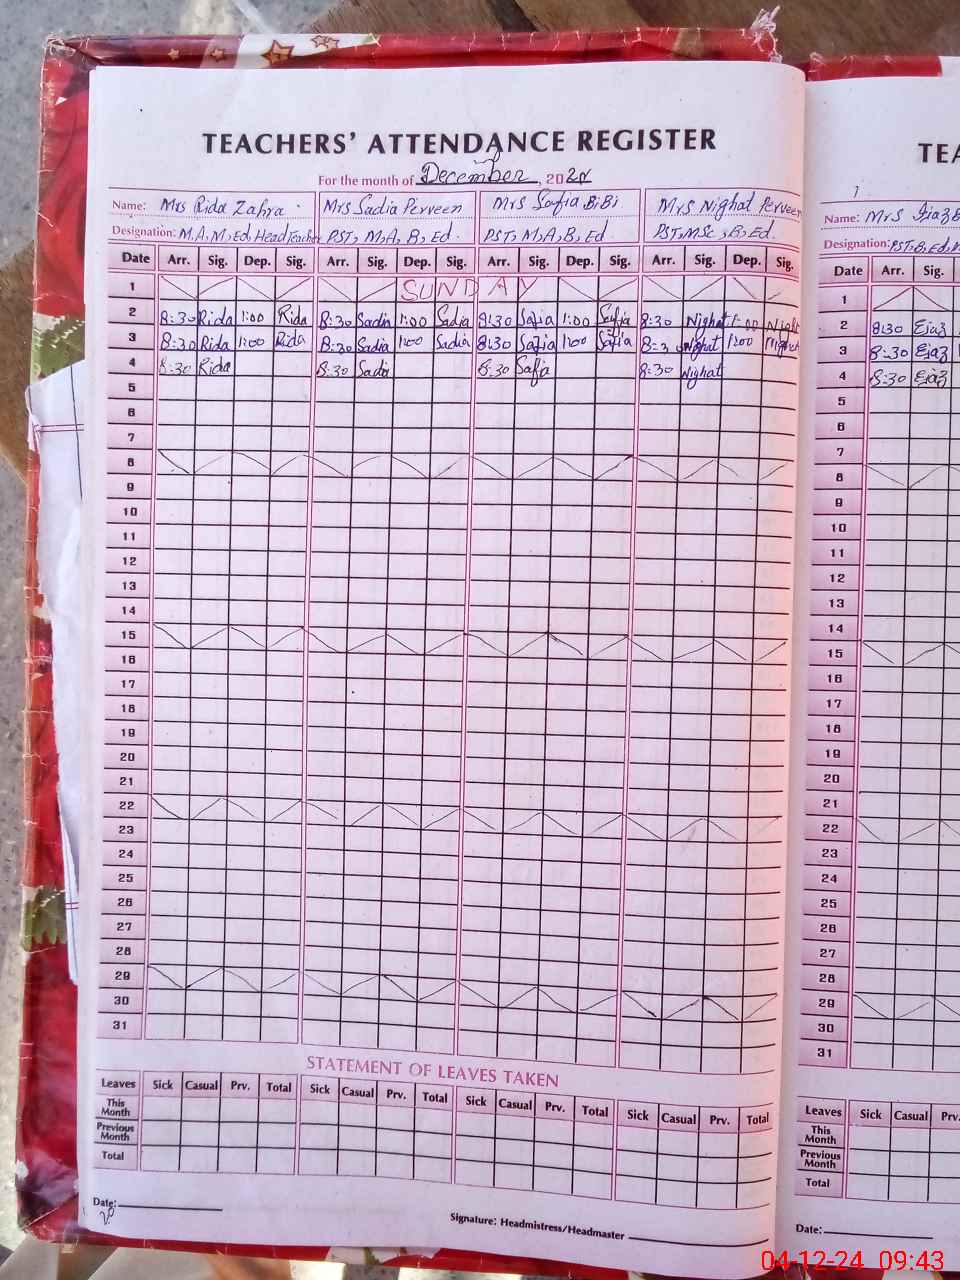 TEACHERS' ATTENDANCE REGISTER
For the month of December, 2024
Name: Mrs Rida Zahra Mrs Sadia Perveen Mrs Safia BiBi Mrs Nighat Perveen
Designation: M,A,M,Ed,Head Teacher PST, M,A,B,Ed. PST, M,A,B,Ed PST,MSc,B,Ed.
Date Arr. Sig. Dep. Sig. Arr. Sig. Dep. Sig. Arr. Sig. Dep. Sig. Arr. Sig. Dep. Sig.
1 SUNDAY
2 8:30 Rida 1:00 Rida 8:30 Sadia 1:00 Sadia 8:30 Safia 1:00 Safia 8:30 Nighat 1:00 Nigh
3 8:30 Rida 1:00 Rida 8:30 Sadia 1:00 Sadia 8:30 Safia 1:00 Safia 8:3 Nighat 1:00 Nighat
4 8:30 Rida 8:30 Sadia 8:30 Safia 8:30 Nighat
5
6
7
8
9
10
11
12
13
14
15
16
17
18
19
20
21
22
23
24
25
26
27
28
29
30
31
STATEMENT OF LEAVES TAKEN
Leaves Sick Casual Prv. Total Sick Casual Prv. Total Sick Casual Prv. Total Sick Casual Prv. Total
This Month
Previous Month
Total
Date:
Signature: Headmistress/Headmaster
TEA
1
Name: Mrs Ijaz B
Designation: PST,B,Ed,
Date Arr. Sig.
1
2 8:30 Ejaz
3 8:30 Ejaz
4 8:30 Ejaz
5
6
7
8
9
10
11
12
13
14
15
16
17
18
19
20
21
22
23
24
25
26
27
28
29
30
31
Leaves Sick Casual Prv.
This Month
Previous Month
Total
Date:
04-12-24 09:43